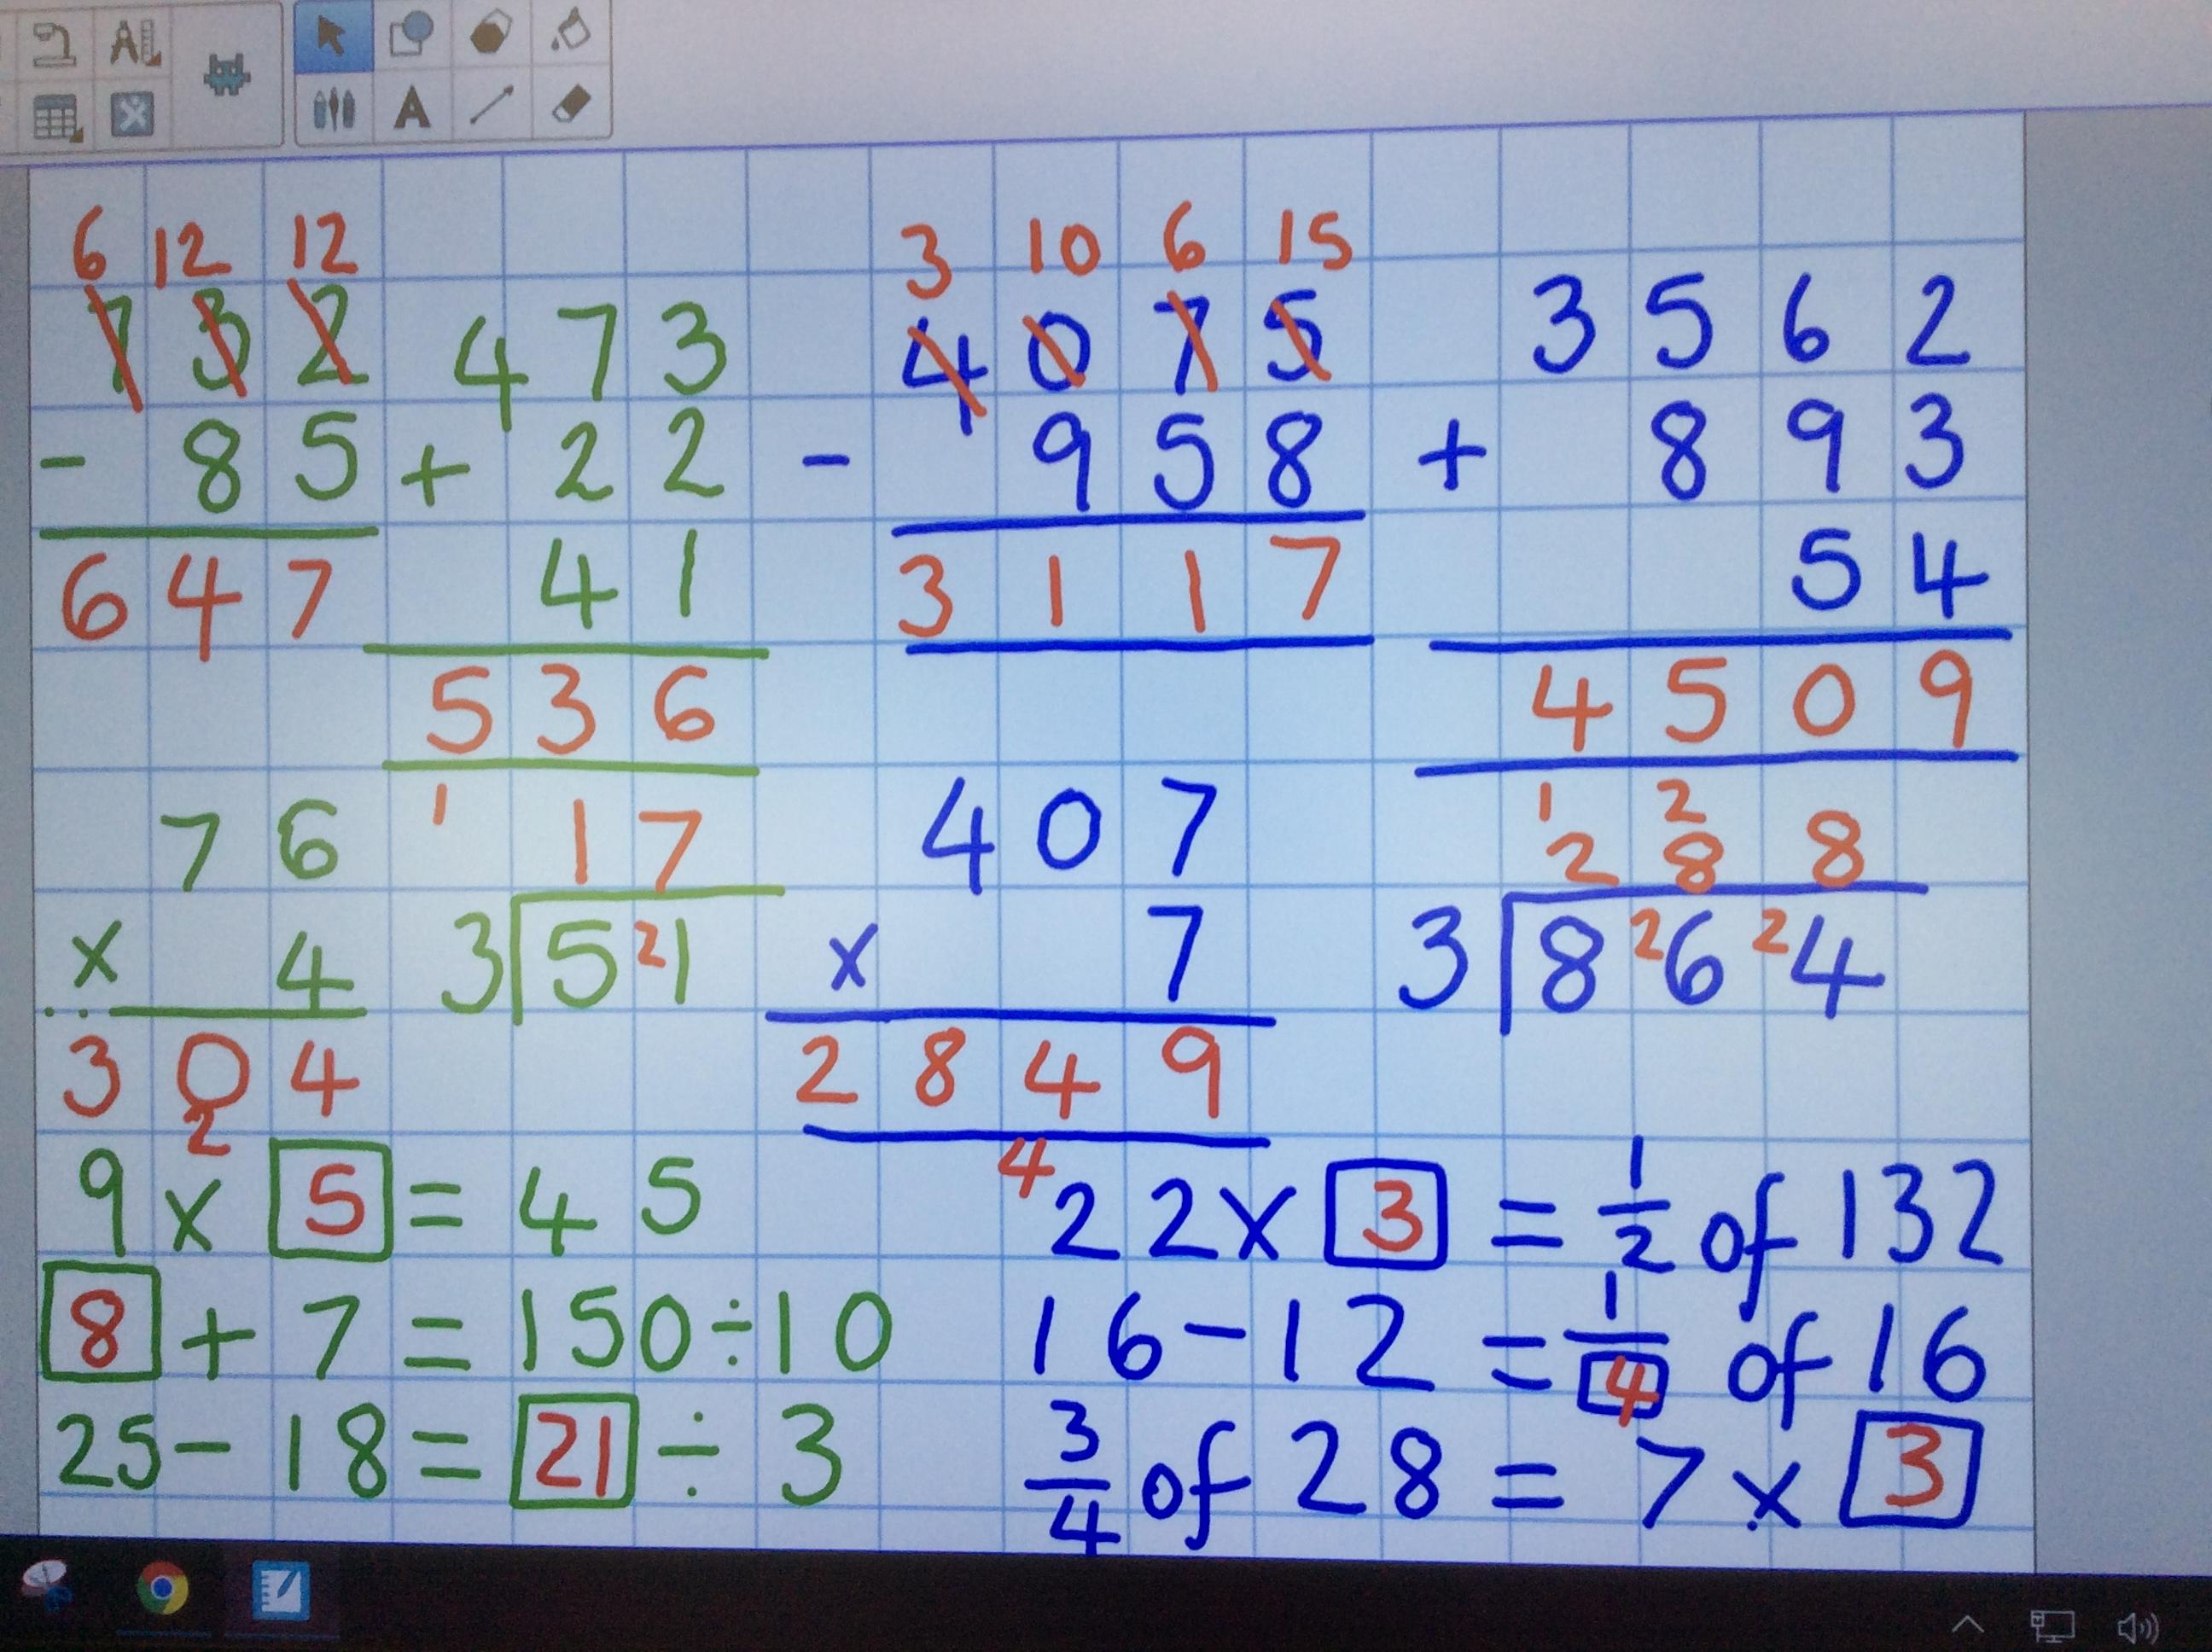 6 12 12
7 3 2
- 8 5
6 4 7
4 7 3
+ 2 2
4 1
5 3 6
1
3 10 6 15
4 0 7 5
- 9 5 8
3 1 1 7
3 5 6 2
+ 8 9 3
5 4
4 5 0 9
1 2
7 6
x 4
3 0 4
2
1 7
3 5 2 1
4 0 7
x 7
2 8 4 9
4
2 8 8
3 8 2 6 2 4
9 x 5 = 4 5
8 + 7 = 150 ÷ 10
25 - 18 = 21 ÷ 3
22 x 3 = 1/2 of 132
16 - 12 = 1/4 of 16
3/4 of 28 = 7 x 3
A